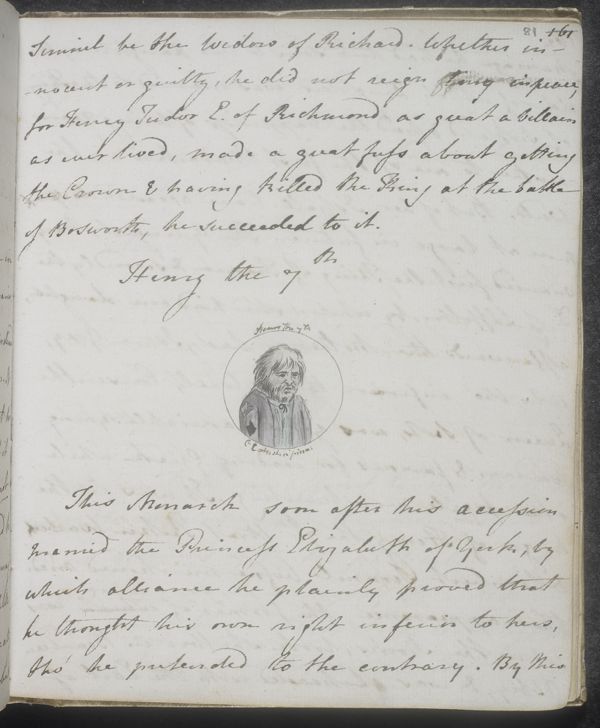 81 161
Simnel be the Widow of Richard. Whether in-
-nocent or guilty, he did not reign long in peace,
for Henry Tudor E. of Richmond as great a Villain
as ever lived, made a great fuss about getting
the Crown & having killed the King at the battle
of Bosworth, he succeeded to it.
Henry the 7th
Henry the 7th
C E Austen pinx.
This Monarch soon after his accession
married the Princess Elizabeth of York, by
which alliance he plainly proved that
he thought his own right inferior to hers,
tho' he pretended to the contrary. By this